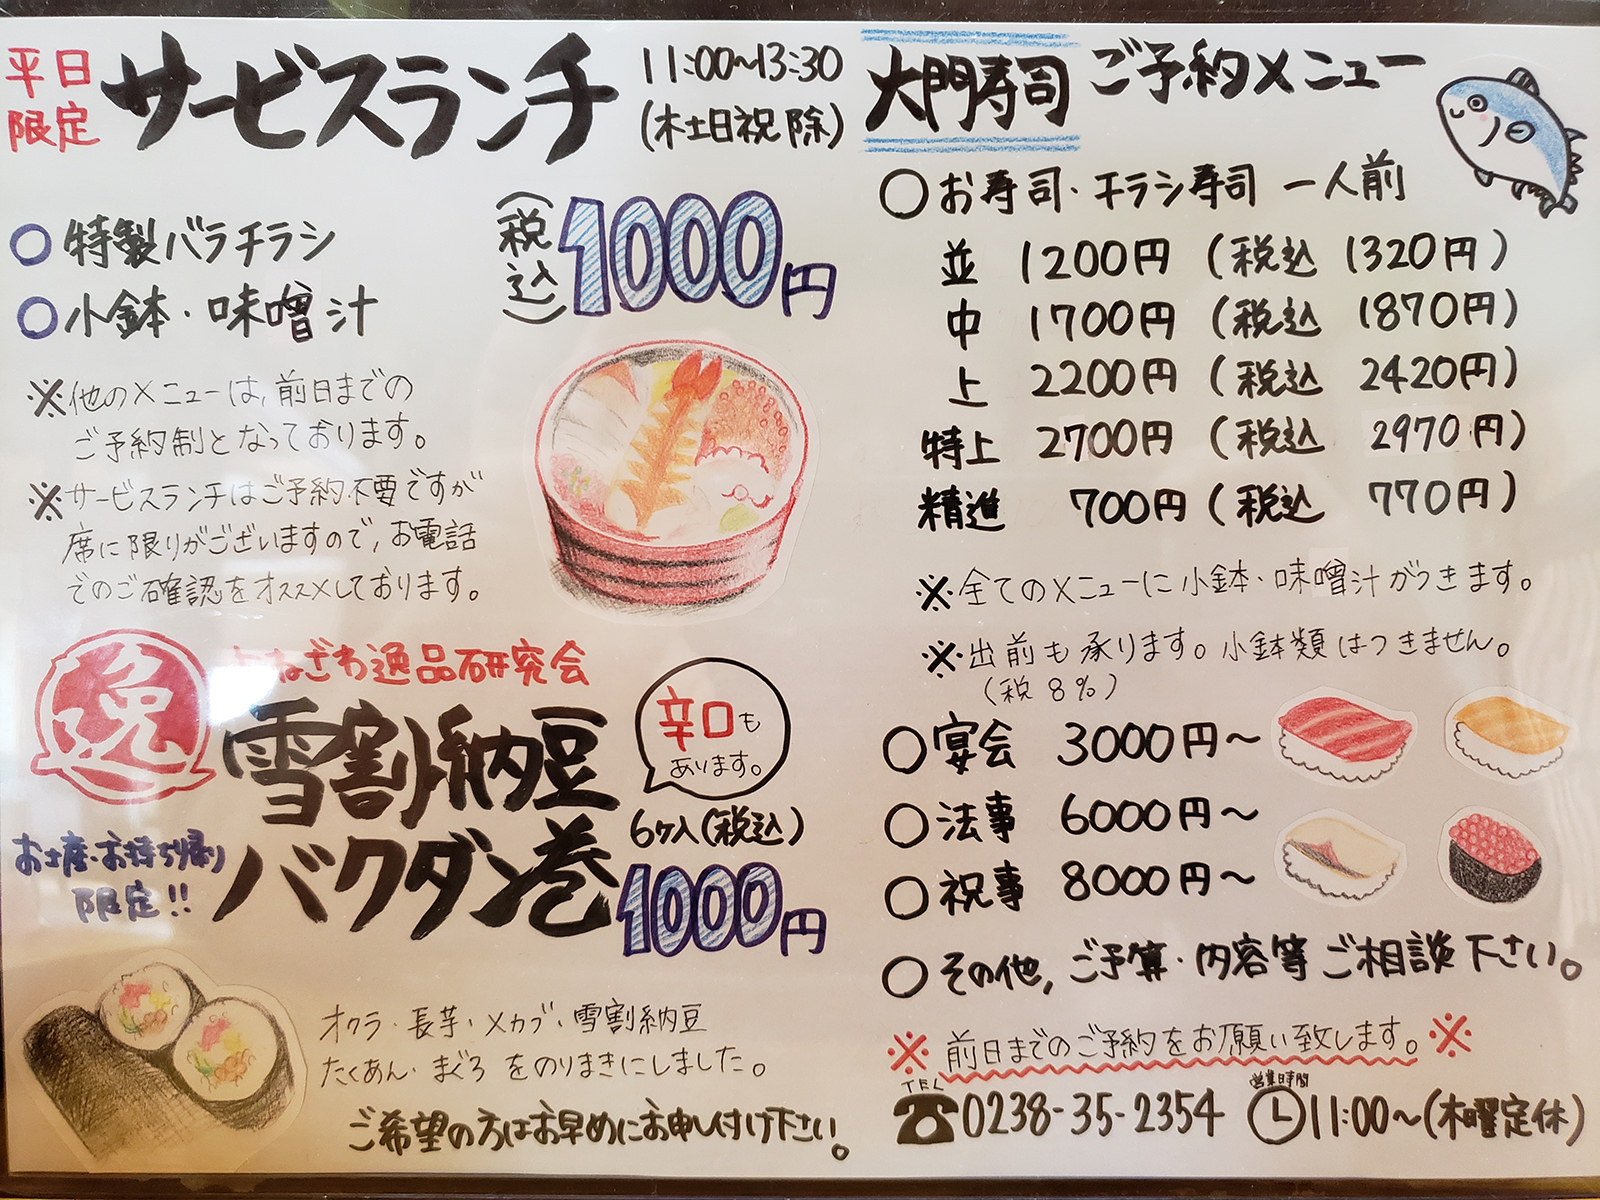 平日
限定
サービスランチ
11:00~13:30
(木土日祝 除)
○特製バラチラシ
○小鉢・味噌汁
(税込)1000円
※他のメニューは、前日までの
ご予約制となっております。
※サービスランチはご予約不要ですが
席に限りがございますので、お電話
でのご確認をオススメしております。
逸
よねざわ逸品研究会
雪割納豆
バクダン巻
辛口も
あります。
6ヶ入(税込)
1000円
お土産・お持ち帰り
限定!!
オクラ・長芋・メカブ・雪割納豆
たくあん・まぐろ をのりまきにしました。
ご希望の方はお早めにお申し付け下さい。
大門寿司 ご予約メニュー
○お寿司・チラシ寿司 一人前
並 1200円 (税込 1320円)
中 1700円 (税込 1870円)
上 2200円 (税込 2420円)
特上 2700円 (税込 2970円)
精進 700円 (税込 770円)
※全てのメニューに小鉢・味噌汁がつきます。
※出前も承ります。小鉢類はつきません。
(税 8%)
○宴会 3000円~
○法事 6000円~
○祝事 8000円~
○その他、ご予算・内容等 ご相談下さい。
※前日までのご予約をお願い致します。※
TEL
0238-35-2354
営業時間
11:00~(木曜定休)